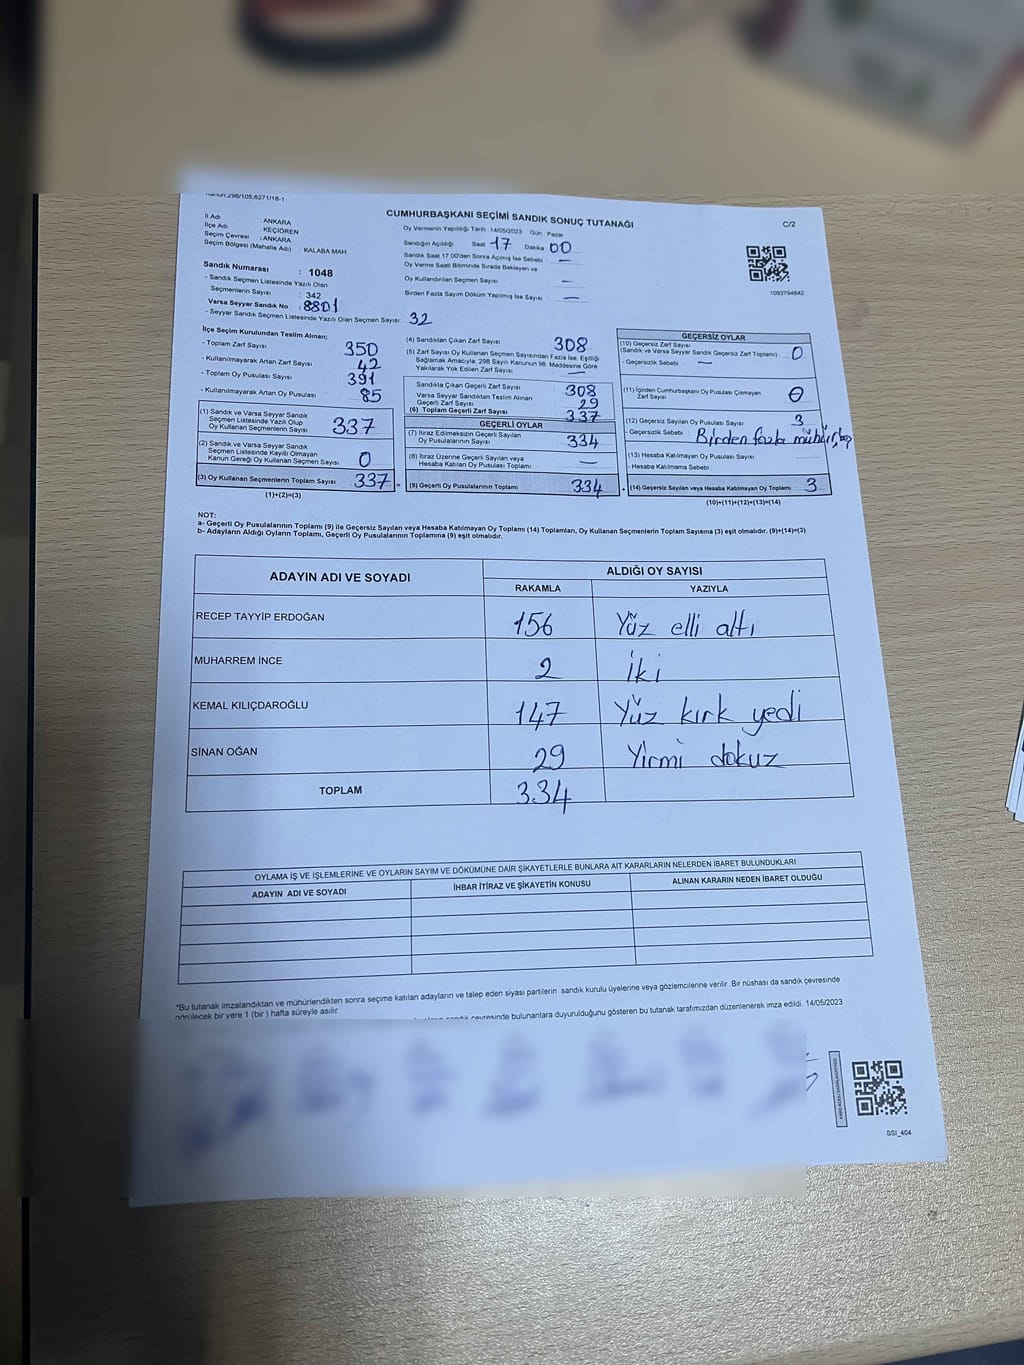 Kanun:298/105;6271/18-1
CUMHURBAŞKANI SEÇİMİ SANDIK SONUÇ TUTANAĞI
C/2
İl Adı : ANKARA
İlçe Adı : KEÇİÖREN
Seçim Çevresi : ANKARA
Seçim Bölgesi (Mahalle Adı) : KALABA MAH
Sandık Numarası : 1048
- Sandık Seçmen Listesinde Yazılı Olan
Seçmenlerin Sayısı : 342
Varsa Seyyar Sandık No : 8801
- Seyyar Sandık Seçmen Listesinde Yazılı Olan Seçmen Sayısı: 32
Oy Vermenin Yapıldığı Tarih : 14/05/2023 Gün : Pazar
Sandığın Açıldığı Saat 17 Dakika 00
Sandık Saat 17.00'den Sonra Açılmış İse Sebebi : —
Oy Verme Saati Bitiminde Sırada Bekleyen ve
Oy Kullandırılan Seçmen Sayısı : —
Birden Fazla Sayım Döküm Yapılmış İse Sayısı : —
1093794642
İlçe Seçim Kurulundan Teslim Alınan;
- Toplam Zarf Sayısı 350
- Kullanılmayarak Artan Zarf Sayısı 42
- Toplam Oy Pusulası Sayısı 391
- Kullanılmayarak Artan Oy Pusulası 85
(1) Sandık ve Varsa Seyyar Sandık
Seçmen Listesinde Yazılı Olup
Oy Kullanan Seçmenlerin Sayısı 337
(2) Sandık ve Varsa Seyyar Sandık
Seçmen Listesinde Kayıtlı Olmayan
Kanun Gereği Oy Kullanan Seçmen Sayısı 0
(3) Oy Kullanan Seçmenlerin Toplam Sayısı 337
(1)+(2)=(3)
(4) Sandıktan Çıkan Zarf Sayısı 308
(5) Zarf Sayısı Oy Kullanan Seçmen Sayısından Fazla İse, Eşitliği
Sağlamak Amacıyla, 298 Sayılı Kanunun 98. Maddesine Göre
Yakılarak Yok Edilen Zarf Sayısı —
Sandıkta Çıkan Geçerli Zarf Sayısı 308
Varsa Seyyar Sandıktan Teslim Alınan
Geçerli Zarf Sayısı 29
(6) Toplam Geçerli Zarf Sayısı 337
GEÇERLİ OYLAR
(7) İtiraz Edilmeksizin Geçerli Sayılan
Oy Pusulalarının Sayısı 334
(8) İtiraz Üzerine Geçerli Sayılan veya
Hesaba Katılan Oy Pusulası Toplamı —
(9) Geçerli Oy Pusulalarının Toplamı 334
GEÇERSİZ OYLAR
(10) Geçersiz Zarf Sayısı
(Sandık ve Varsa Seyyar Sandık Geçersiz Zarf Toplamı) : 0
- Geçersizlik Sebebi : —
(11) İçinden Cumhurbaşkanı Oy Pusulası Çıkmayan
Zarf Sayısı : 0
(12) Geçersiz Sayılan Oy Pusulası Sayısı : 3
- Geçersizlik Sebebi : Birden fazla mühür,
(13) Hesaba Katılmayan Oy Pusulası Sayısı :
- Hesaba Katılmama Sebebi :
(14) Geçersiz Sayılan veya Hesaba Katılmayan Oy Toplamı : 3
(10)+(11)+(12)+(13)=(14)
NOT:
a- Geçerli Oy Pusulalarının Toplamı (9) ile Geçersiz Sayılan veya Hesaba Katılmayan Oy Toplamı (14) Toplamları, Oy Kullanan Seçmenlerin Toplam Sayısına (3) eşit olmalıdır. (9)+(14)=(3)
b- Adayların Aldığı Oyların Toplamı, Geçerli Oy Pusulalarının Toplamına (9) eşit olmalıdır.
ADAYIN ADI VE SOYADI ALDIĞI OY SAYISI
RAKAMLA YAZIYLA
RECEP TAYYİP ERDOĞAN 156 Yüz elli altı
MUHARREM İNCE 2 İki
KEMAL KILIÇDAROĞLU 147 Yüz kırk yedi
SİNAN OĞAN 29 Yirmi dokuz
TOPLAM 334
OYLAMA İŞ VE İŞLEMLERİNE VE OYLARIN SAYIM VE DÖKÜMÜNE DAİR ŞİKAYETLERLE BUNLARA AİT KARARLARIN NELERDEN İBARET BULUNDUKLARI
ADAYIN ADI VE SOYADI İHBAR İTİRAZ VE ŞİKAYETİN KONUSU ALINAN KARARIN NEDEN İBARET OLDUĞU
*Bu tutanak imzalandıktan ve mühürlendikten sonra seçime katılan adayların ve talep eden siyasi partilerin sandık kurulu üyelerine veya gözlemcilerine verilir. Bir nüshası da sandık çevresinde
görülecek bir yere 1 (bir ) hafta süreyle asılır.
sandık çevresinde bulunanlara duyurulduğunu gösteren bu tutanak tarafımızdan düzenlenerek imza edildi. 14/05/2023
SSI_404